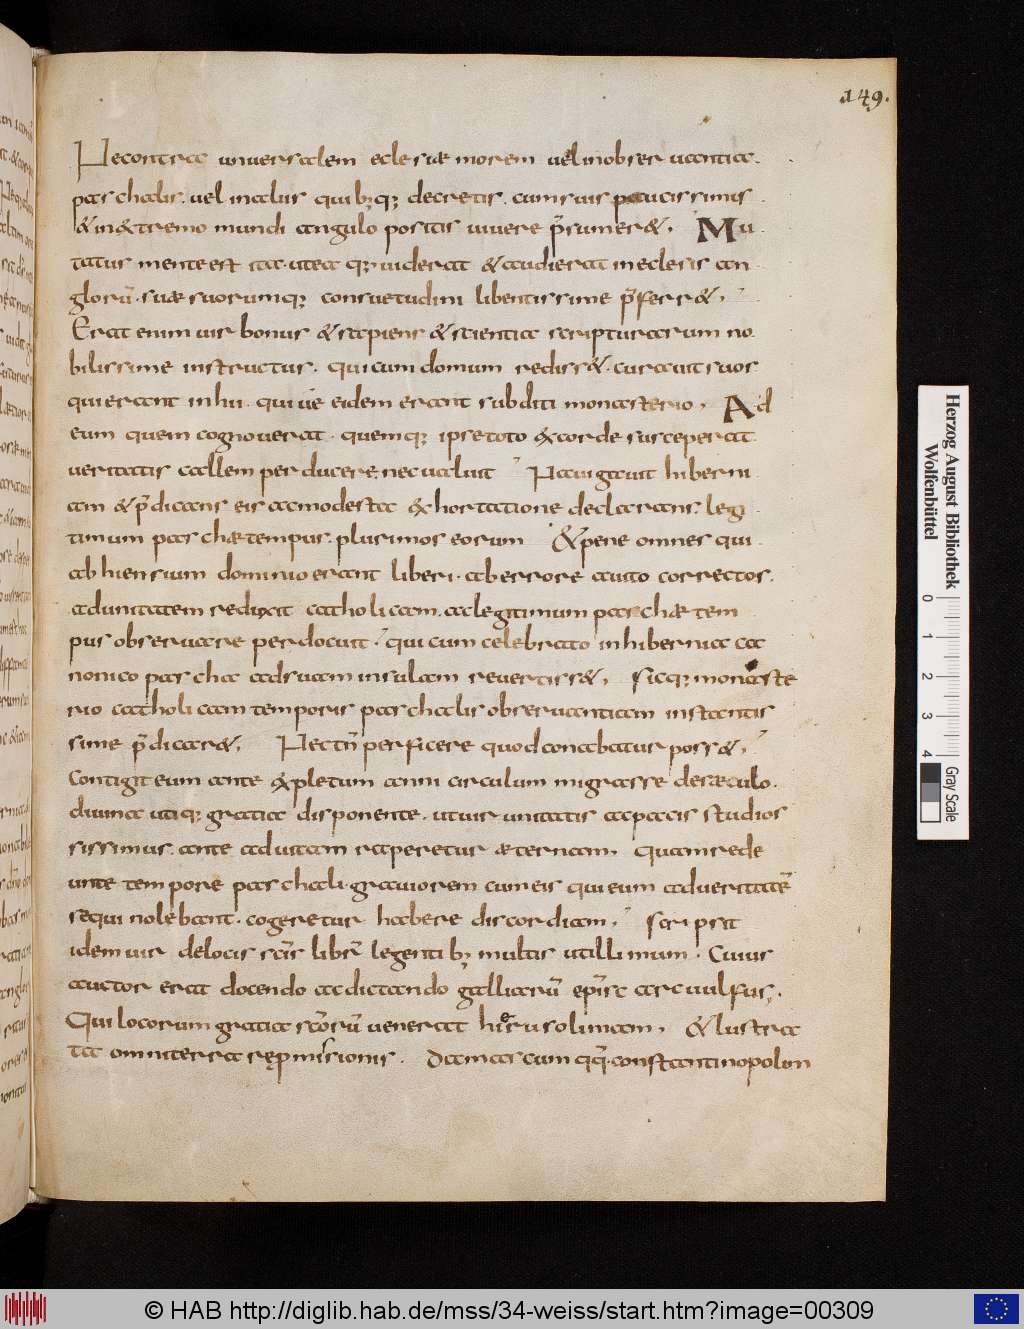 149.
Necontra universalem eclesiæ morem vel in observantia
paschalis. vel in aliis quibꝫqꝫ decretis. cum suis paucissimis
& in extremo mundi angulo positis vivere p̄sumer&, Mu
tatus mente est ita utea qꝫ viderat & audierat in eclesiis an
glorū. suæ suorumqꝫ consuetudini libentissime p̄ferr&,
Erat enim vir bonus & sapiens & scientia scripturarum no
bilissime instructus. qui cum domum rediss& curavit suos
qui erant in hii. qui ve eidem erant subditi monasterio, Ad
eum quem cognoverat. quemqꝫ ipse toto excorde susceperat
veritatis callem perducere, nec valuit Navigavit hiberni
am & p̄dicans eis acmodesta exhortatione declarans legi
timum paschæ tempus. plurimos eorum & pene omnes qui
ab hiensium dominio erant liberi. ab errore avito correctos.
ad unitatem reduxit catholicam. ac legitimum paschæ tem
pus observare perdocuit. qui cum celebrato in hibernia ca
nonico pascha ad suam insulam revertiss&, sicqꝫ monaste
rio catholicam temporis paschalis observantiam instantis
sime p̄dicar&, Nec tn̄ perficere quod conabatur poss&,
Contigit eum ante expletum anni circulum migrasse desæculo.
divina utiqꝫ gratia disponente. ut vir unitatis ac pacis studios
sissimus. ante ad vitam raperetur æternam, quam rede
unte tempore paschali. graviorem cum eis qui eum ad veritatē
sequi nolebant. cogeretur habere discordiam, Scripsit
idem vir delocis scīs librū legentibꝫ multis utillimum. Cuius
auctor erat docendo ac dictando galliarū epīsc arcuulfus.
Qui locorum gratia scōrū venerat hierusolimam, & lustra
ta omni terra rep̱misionis. damascum qq̄. constantinopolim
Herzog August Bibliothek
Wolfenbüttel
0 1 2 3 4
Gray Scale
© HAB http://diglib.hab.de/mss/34-weiss/start.htm?image=00309